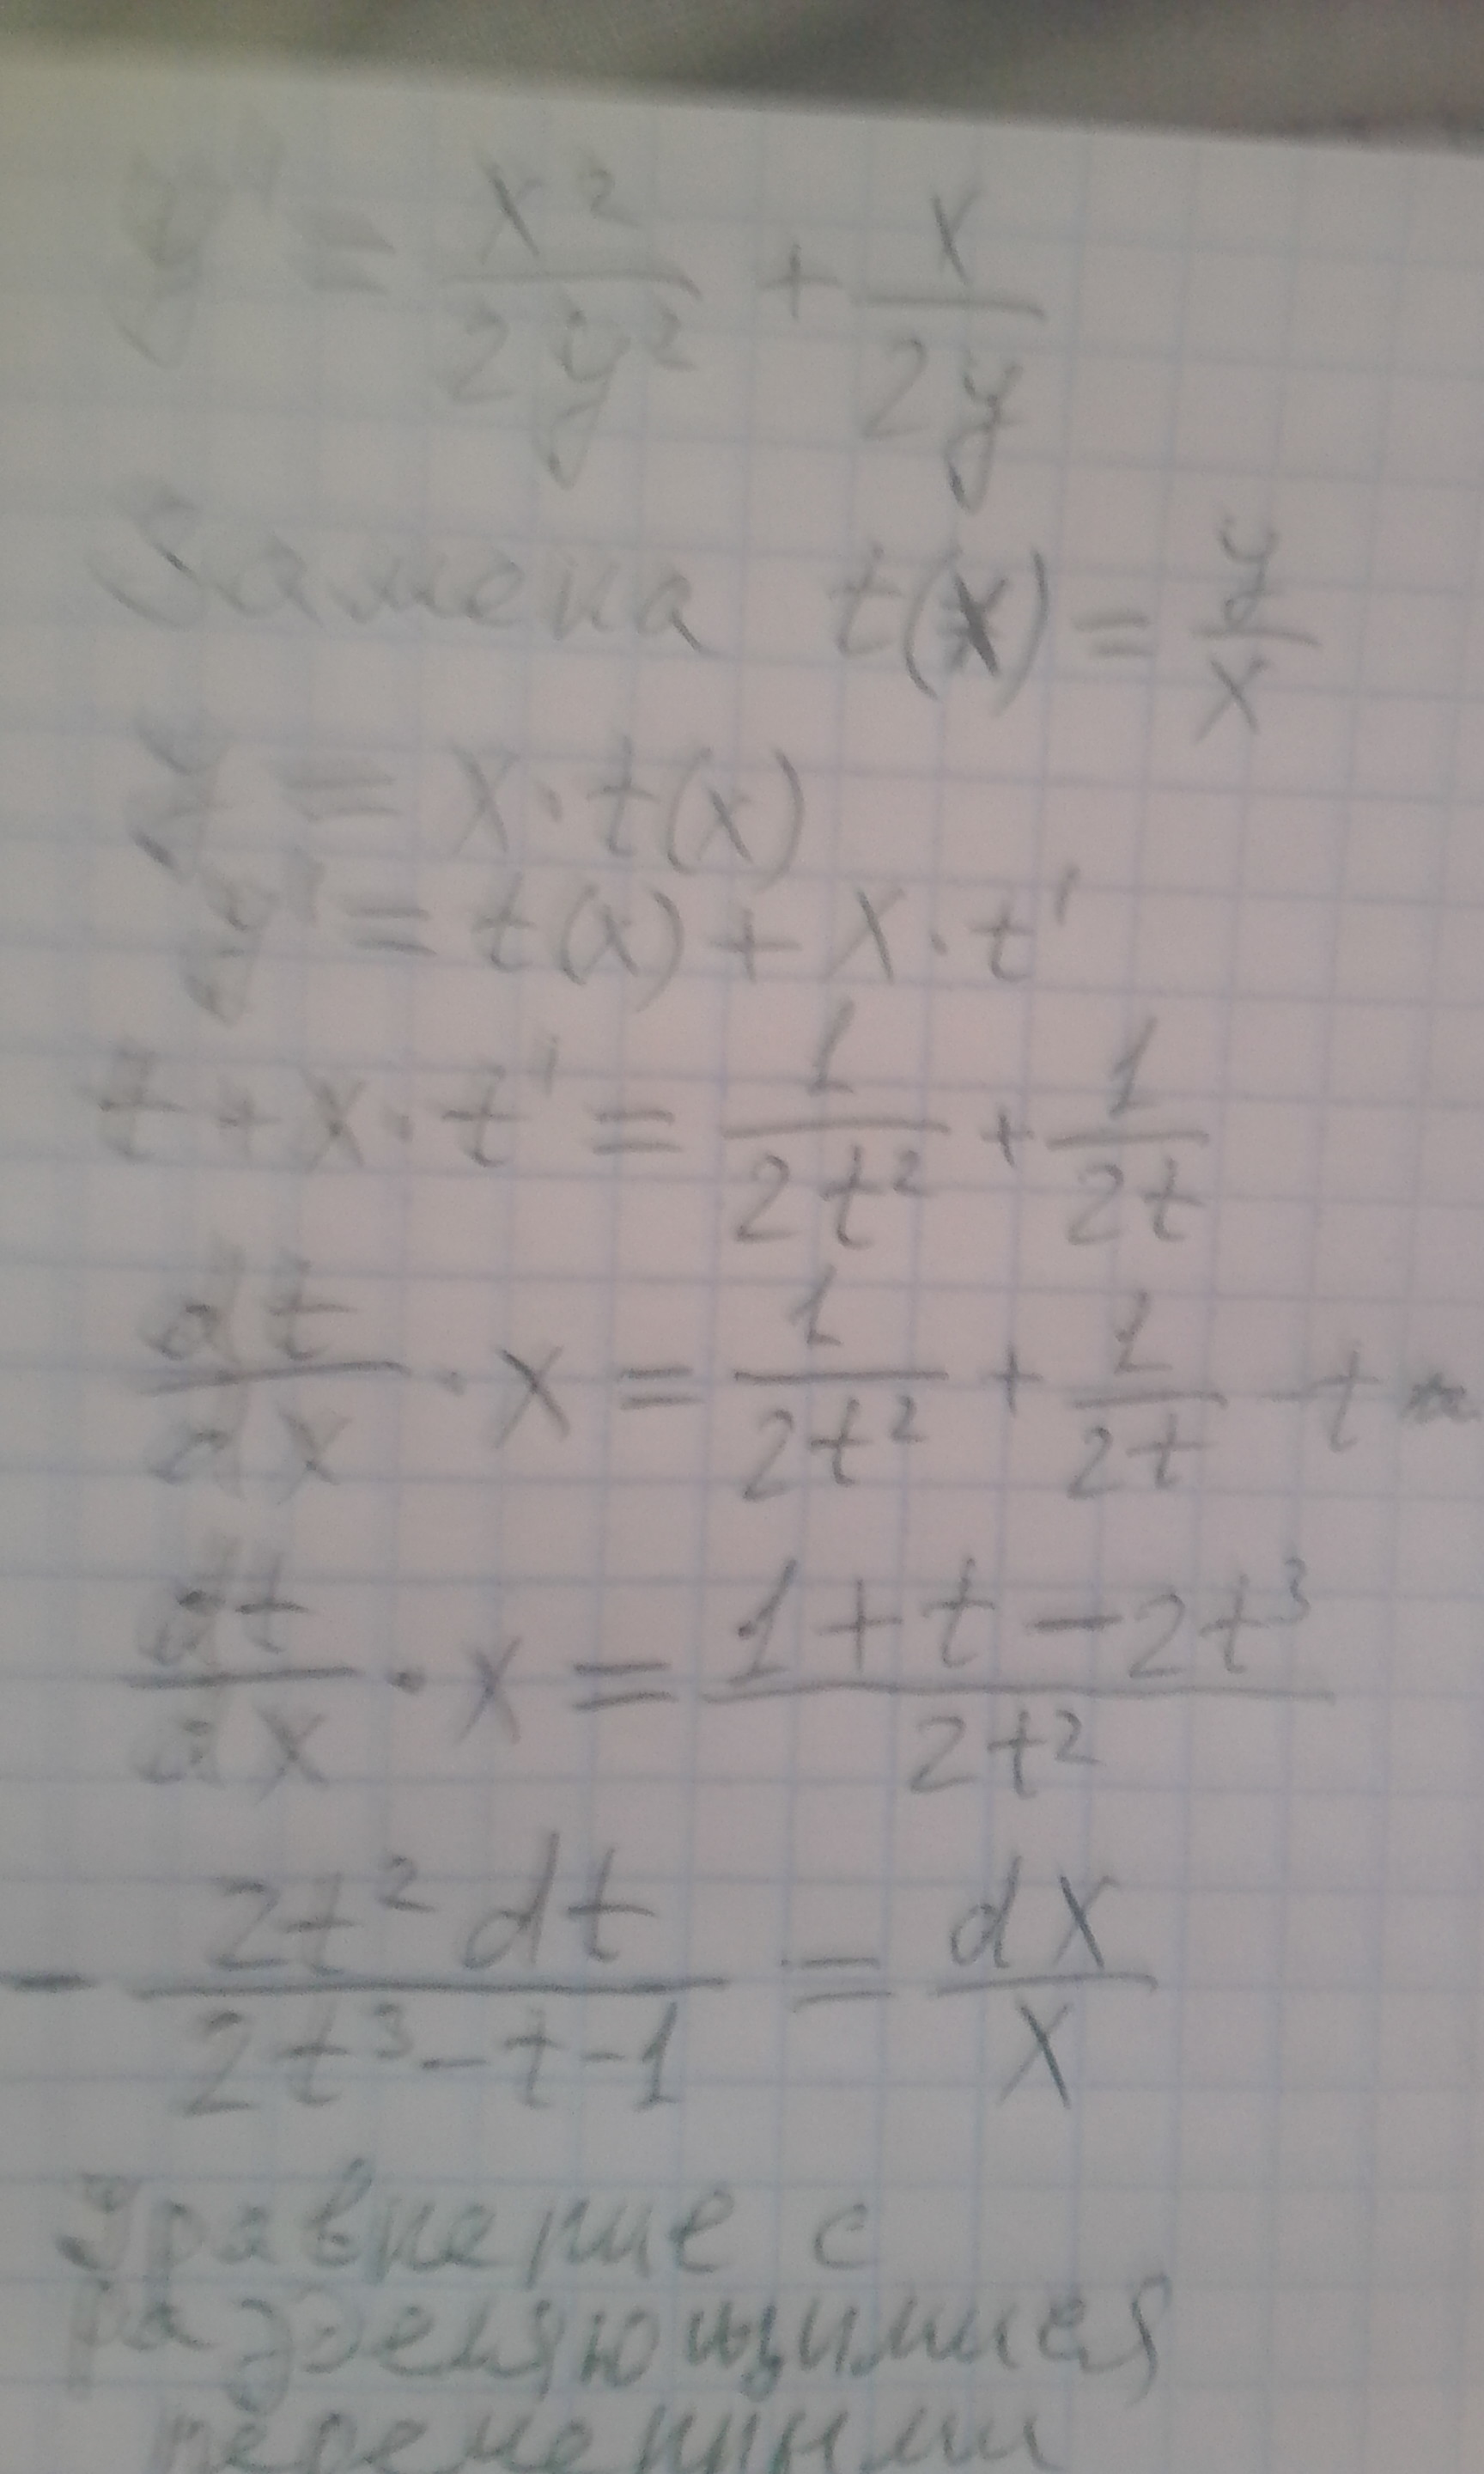 y' = x²/2y² + x/2y
Замена t(x) = y/x
y = x·t(x)
y' = t(x) + x·t'
t + x·t' = 1/2t² + 1/2t
dt/dx · x = 1/2t² + 1/2t - t
dt/dx · x = 1 + t - 2t³/2t²
- 2t² dt/2t³ - t - 1 = dx/x
Уравнение с
разделяющимися
переменными